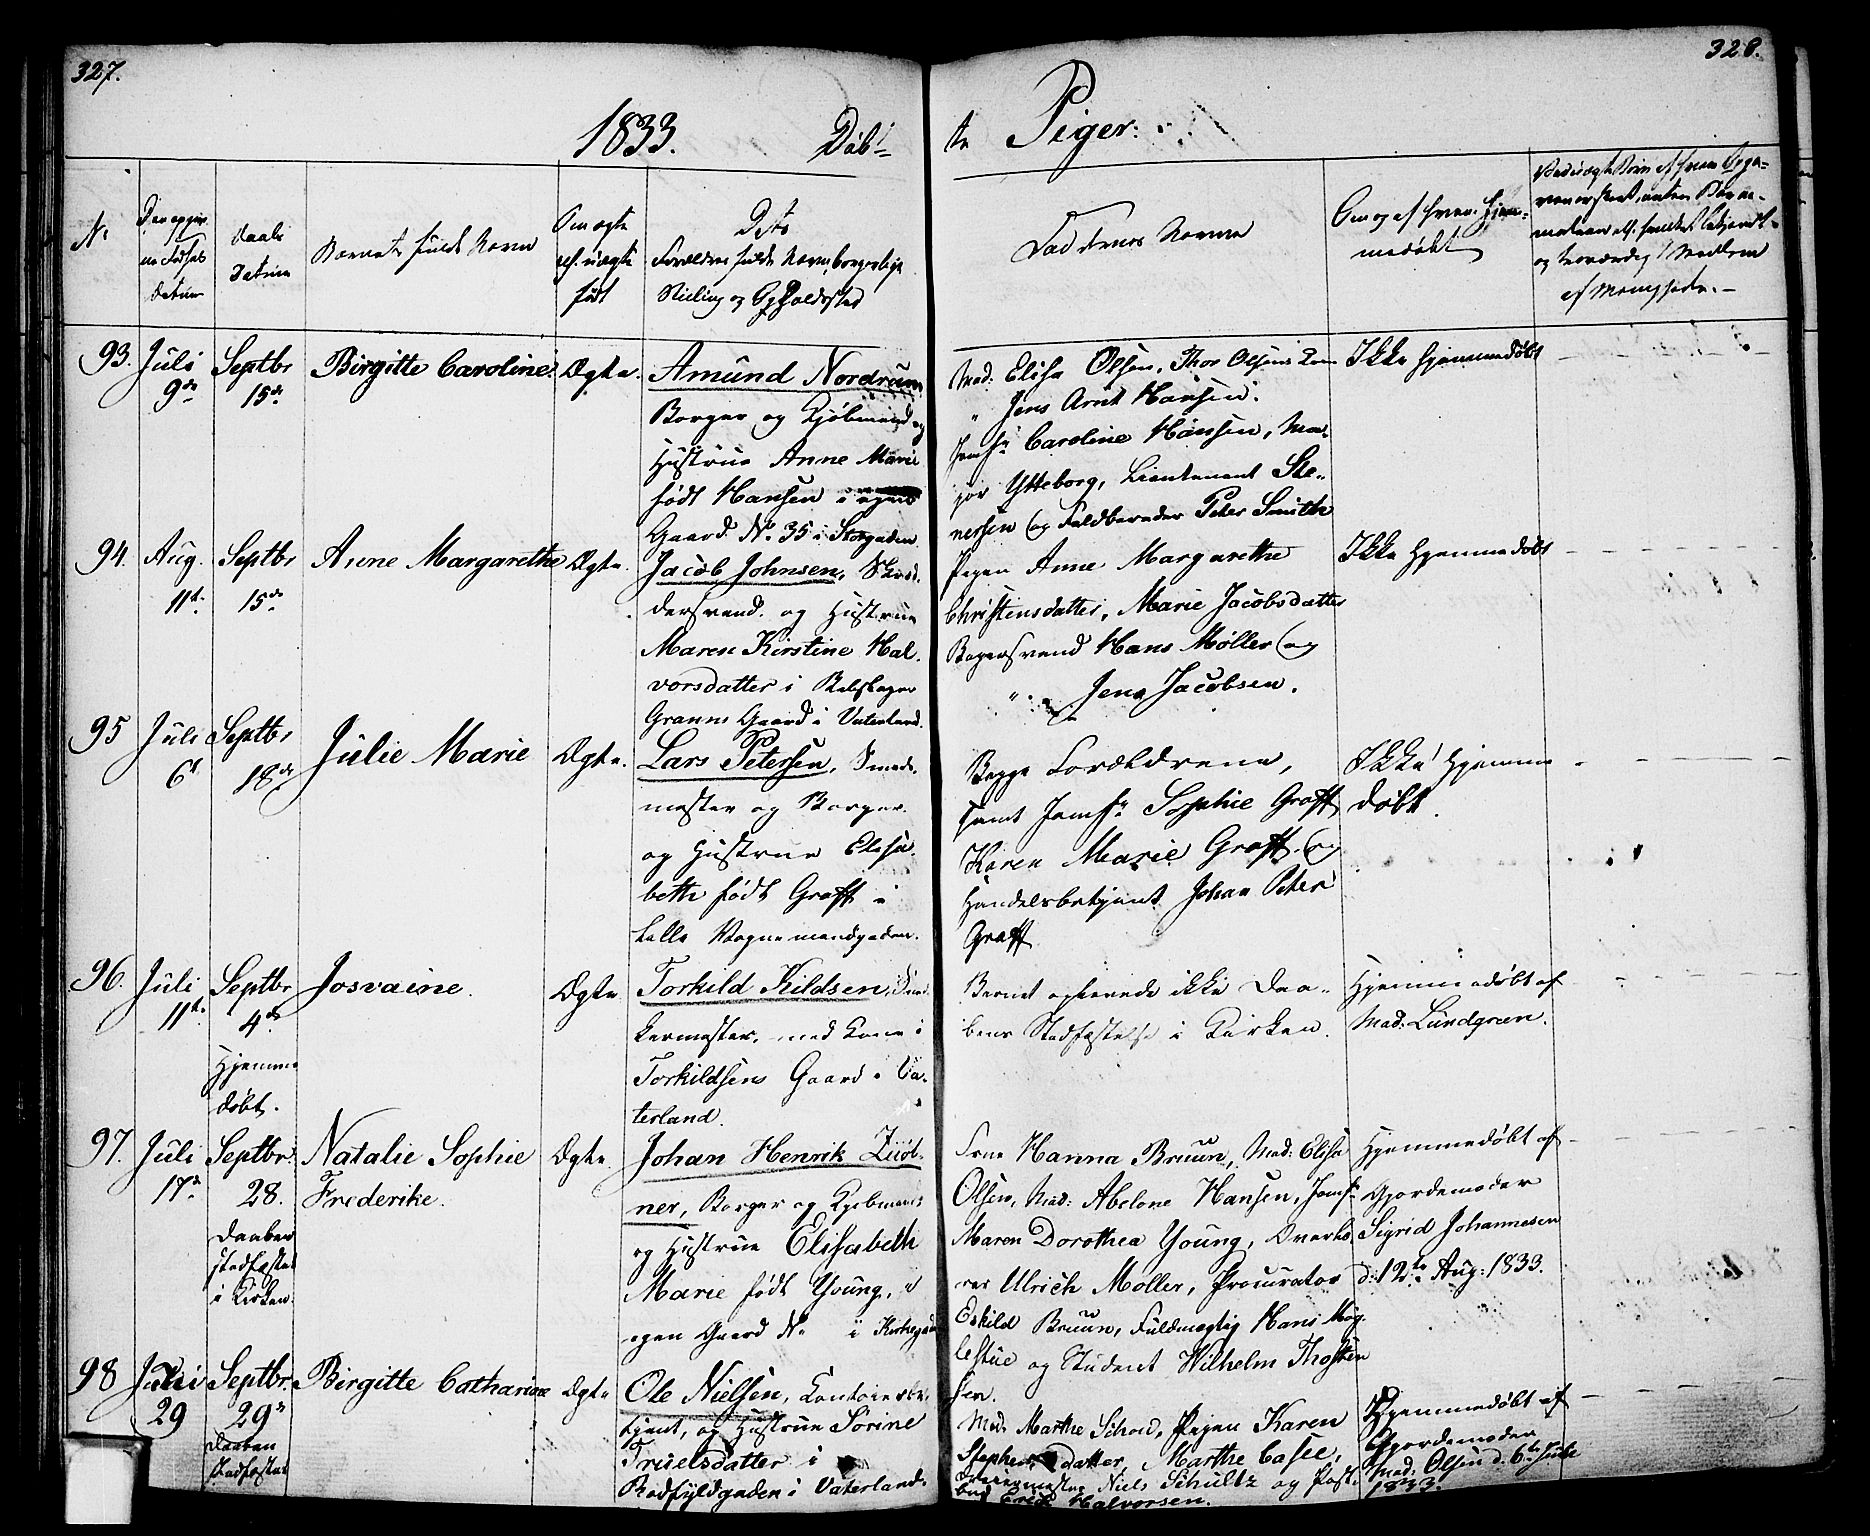 327.
328.
1833. Døbte Piger.
N.
Den opgivne Fødsels Datum
Daabs Datum
Barnets fulde Navn
Om ægte ell. uægte født
Dets Forældres fulde Navn, borgerlige Stilling og Opholdssted
Faddernes Navne
Om og af hvem hjemmedøbt
93. Juli 9de
Septbr 15de
Birgitte Caroline
Ægte.
Amund Nordrum
Borger og Kjøbmand og
Hustrue Anne Marie
født Hansen i egen
Gaard No 35 i Storgaden
Mad: Elise Olsen, Thor Olsens
" Jens Arnt Hansen.
Jomfr Caroline Hansen, Ma-
jor Ytteborg, Lieutenant Ste-
nersen og Fuldbereder Peter Smith
Ikke hjemmedøbt
94. Aug. 11te
Septbr 15de
Anne Margarethe
Ægte.
Jacob Johnsen, Skræd-
dersvend og Hustrue
Maren Kirstine Hal-
vorsdatter i
Grams Gaard i Vaterland.
Pigen Anne Margarethe
Christensdatter, Marie Jacobsdatter
Bagersvend Hans Møller og
" Jens Jacobsen.
Ikke hjemmedøbt
95 Juli 6te
Septbr 18de
Julie Marie
Ægte.
Lars Petersen, Smede-
mester og Borger
og Hustrue Elisa-
beth født Graff i
Lille Vognmandgaden.
Begge Forældrene,
samt Jomfr Sophie Graff
Karen Marie Graff og
Handelsbetjent Johan Peter
Graff
Ikke hjemme
døbt.
96. Juli 11te
Septbr 4de
Hjemme
døbt.
Josvaine.
Ægte
Torkild Kildsen, Sned-
kermester, med Kone i
Torkildsens Gaard i Va-
terland.
Barnet opleevede ikke Daa-
bens Stadfæstelse i Kirken.
Hjemmedøbt af
Mad: Lundgreen.
97. Juli 17de
Septbr. 28.
Daaben
stadfæstet
i Kirken.
Natalie Sophie
Frederike.
Ægte
Johan Henrik Züöl-
ner, Borger og Kjøbmand
og Hustrue Elisabeth
Marie født Young, i
egen Gaard No i Kirkegaden
Frue Hanna Bruun, Mad: Elise
Olsen, Mad: Abelone Hansen, Jomfr
Maren Dorothea Young,
Ulrich Møller, Procurator
Eskild Bruun, Fuldmægtig Hans Mog-
lestue og Student Wilhelm Thosten
sen.
Hjemmedøbt af
Gjordemoder
Sigrid Johannesen
d. 12te Aug: 1833.
98 Juli 29
Septbr. 29de
Daaben
stadfæstet
Birgitte Catharine
Ægte
Ole Nielsen, Contoirbe-
tjent, og Hustrue Sørine
Truelsdatter i
Rødfyldgaden i Vaterland.
Mad. Marthe Schou, Pigen Karen
Stephensdatter, Marthe Casee,
Niels Schultz og Post-
bud Erich Halvorsen.
Hjemmedøbt af
Gjordemoder
Mad: Olsen d. 6te
1833.